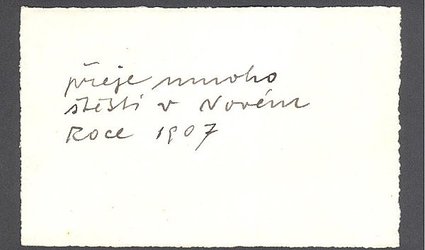 přeje mnoho
štěstí v Novém
Roce 1907